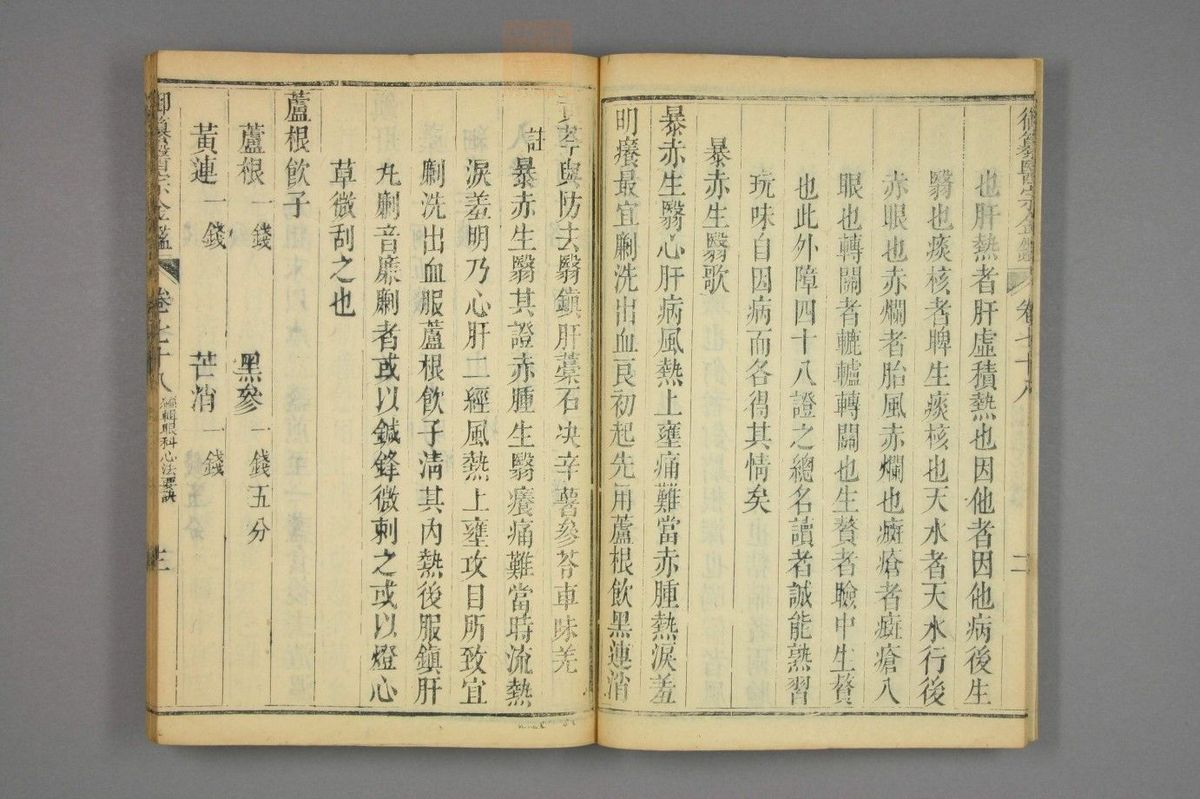 御纂醫宗金鑑 卷七十八 二
也肝熱者肝虛積熱也因他者因他病後生
翳也痰核者脾生痰核也天水者天水行後
赤眼也赤爛者胎風赤爛也癍瘡者癍瘡入
眼也轉關者轆轤轉關也生贅者瞼中生贅
也此外障四十八證之總名讀者誠能熟習
玩味自因病而各得其情矣
暴赤生翳歌
暴赤生翳心肝病風熱上壅痛難當赤腫熱淚羞
明癢最宜劆洗出血良初起先用蘆根飲黑連消
黃芩與防大翳鎮肝藁石决辛薯參苓車味羌
註暴赤生翳其證赤腫生翳癢痛難當時流熱
淚羞明乃心肝二經風熱上壅攻目所致宜
劆洗出血服蘆根飲子清其内熱後服鎮肝
丸劆音廉劆者或以鍼鋒微刺之或以燈心
草微刮之也
蘆根飲子
蘆根一錢 黑參一錢五分
黃連一錢 芒消一錢
御纂醫宗金鑑 卷七十八 編輯眼科心法要訣 三